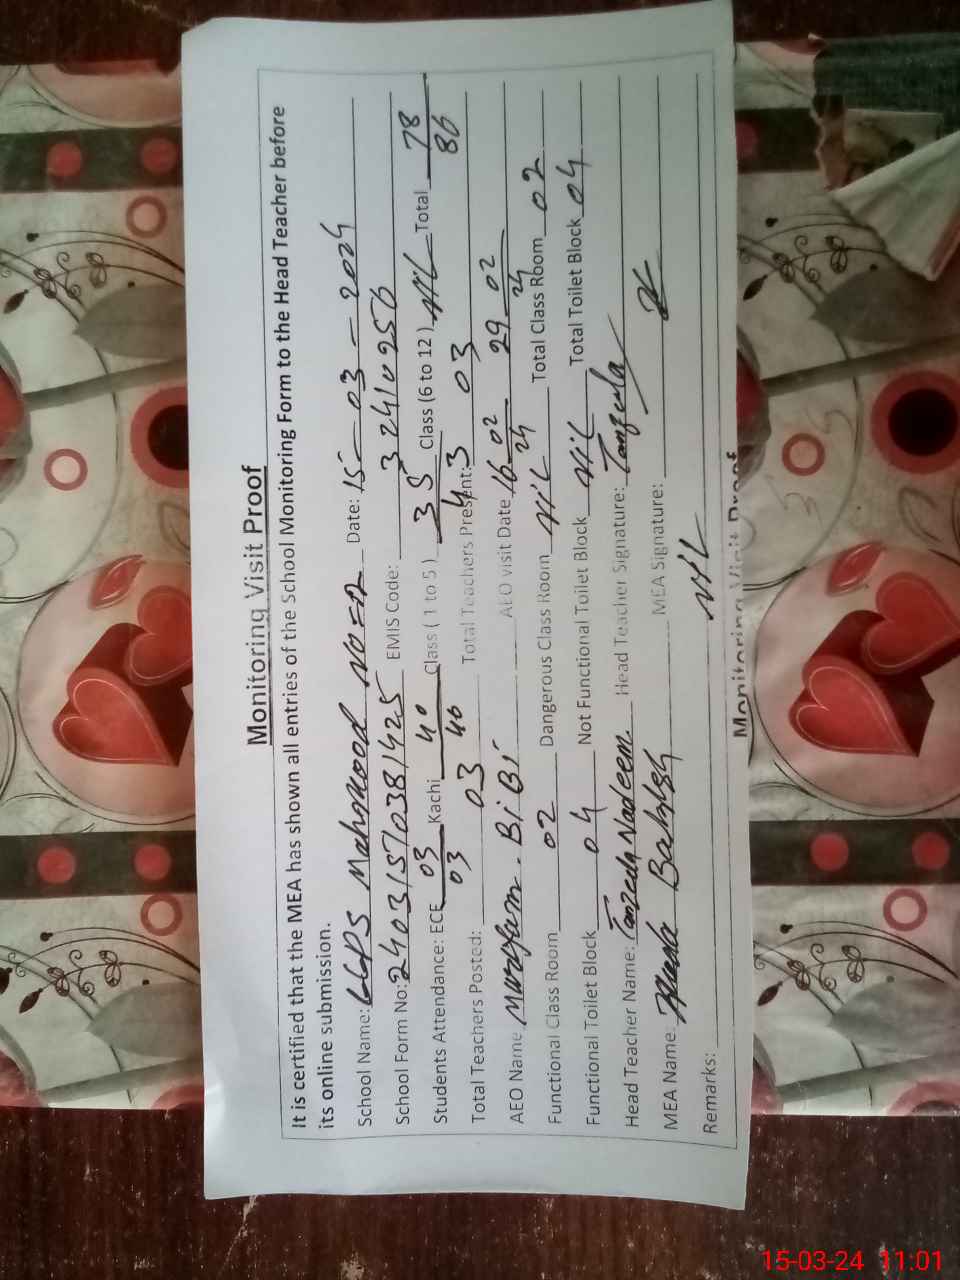 Monitoring Visit Proof
It is certified that the MEA has shown all entries of the School Monitoring Form to the Head Teacher before
its online submission.
School Name: GGPS Mahmood Date: 15-03-2024
School Form No: 24031570381425 EMIS Code: 32410256
Students Attendance: ECE 03/03 Kachi 40/40 Class ( 1 to 5 ) 35/43 Class (6 to 12 ) Nil Total 78/86
Total Teachers Posted: 03 Total Teachers Present: 03
AEO Name Bibi AEO visit Date 16-02-24 29-02-24
Functional Class Room 02 Dangerous Class Room Nil Total Class Room 02
Functional Toilet Block 04 Not Functional Toilet Block Nil Total Toilet Block 04
Head Teacher Name: Tanzeela Nadeem Head Teacher Signature: Tanzeela
MEA Name: MEA Signature:
Remarks: Nil
Monitoring Visit Proof
15-03-24 11:01